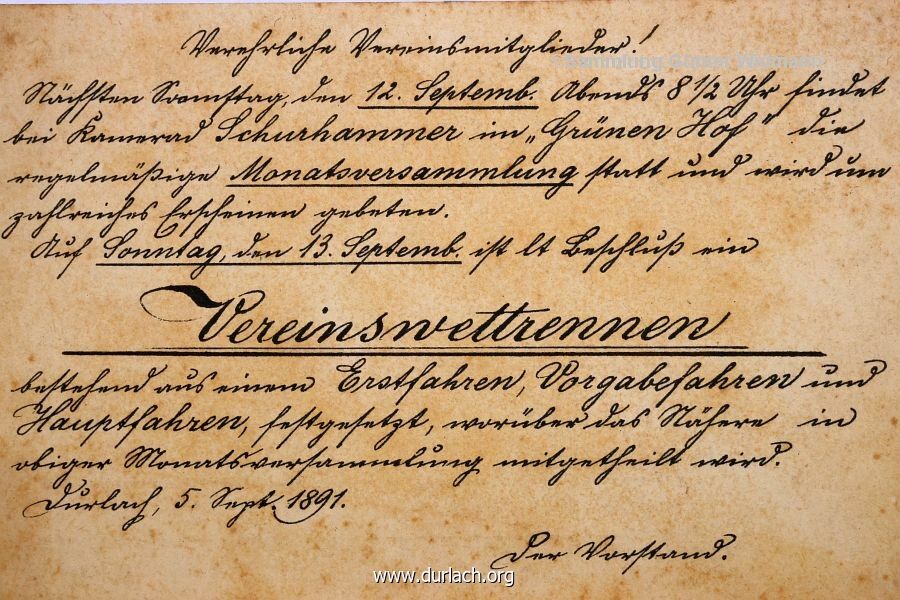 Verehrliche Vereinsmitglieder!
Sammlung Günter Widmann
Nächsten Samstag, den 12. Septemb. Abends 8 1/2 Uhr findet
bei Kamerad Schurhammer im „Grünen Hof" die
regelmäßige Monatsversammlung statt und wird um
zahlreiches Erscheinen gebeten.
Auf Sonntag, den 13. Septemb. ist lt Beschluß ein
Vereinswettrennen
bestehend aus einem Erstfahren, Vorgabefahren und
Hauptfahren, festgesetzt, worüber das Nähere in
obiger Monatsversammlung mitgetheilt wird.
Durlach, 5. Sept. 1891.
Der Vorstand.
www.durlach.org